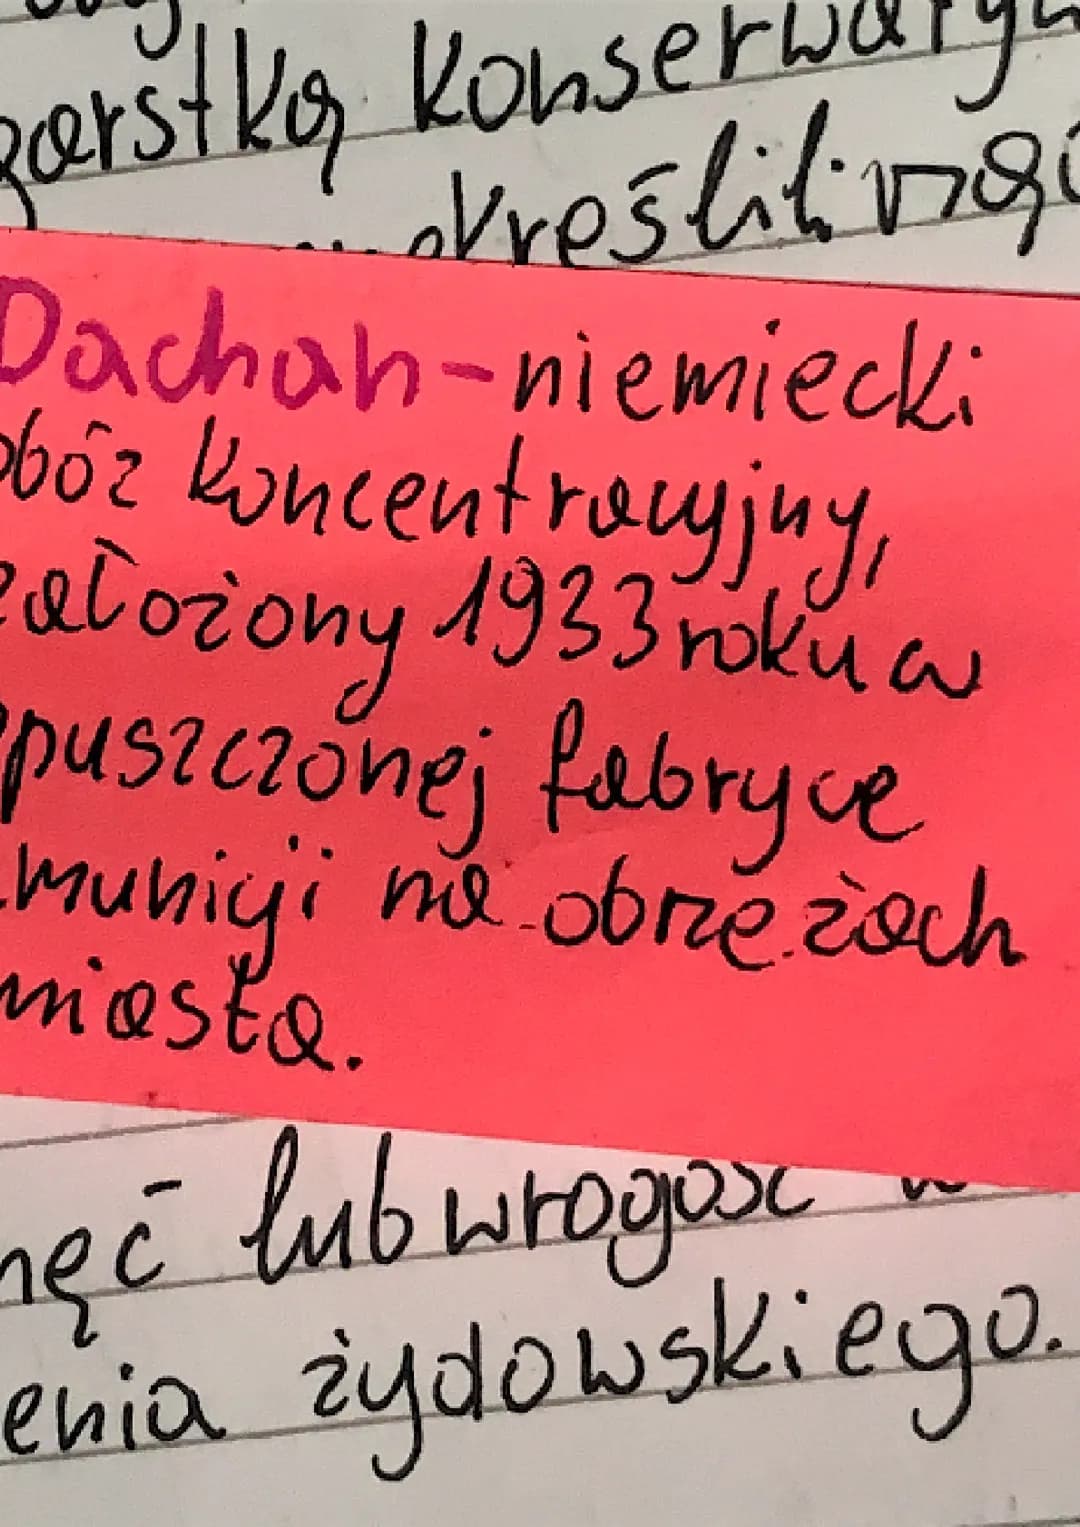 garstką konserwatyw
określili mia
Dachah-niemiecki
obóz koncentracyjny,
założony 1933 roku w
opuszczonej fabryce
amunicji na obrzeżach
miasta.
lub wrogość
żydowskiego.